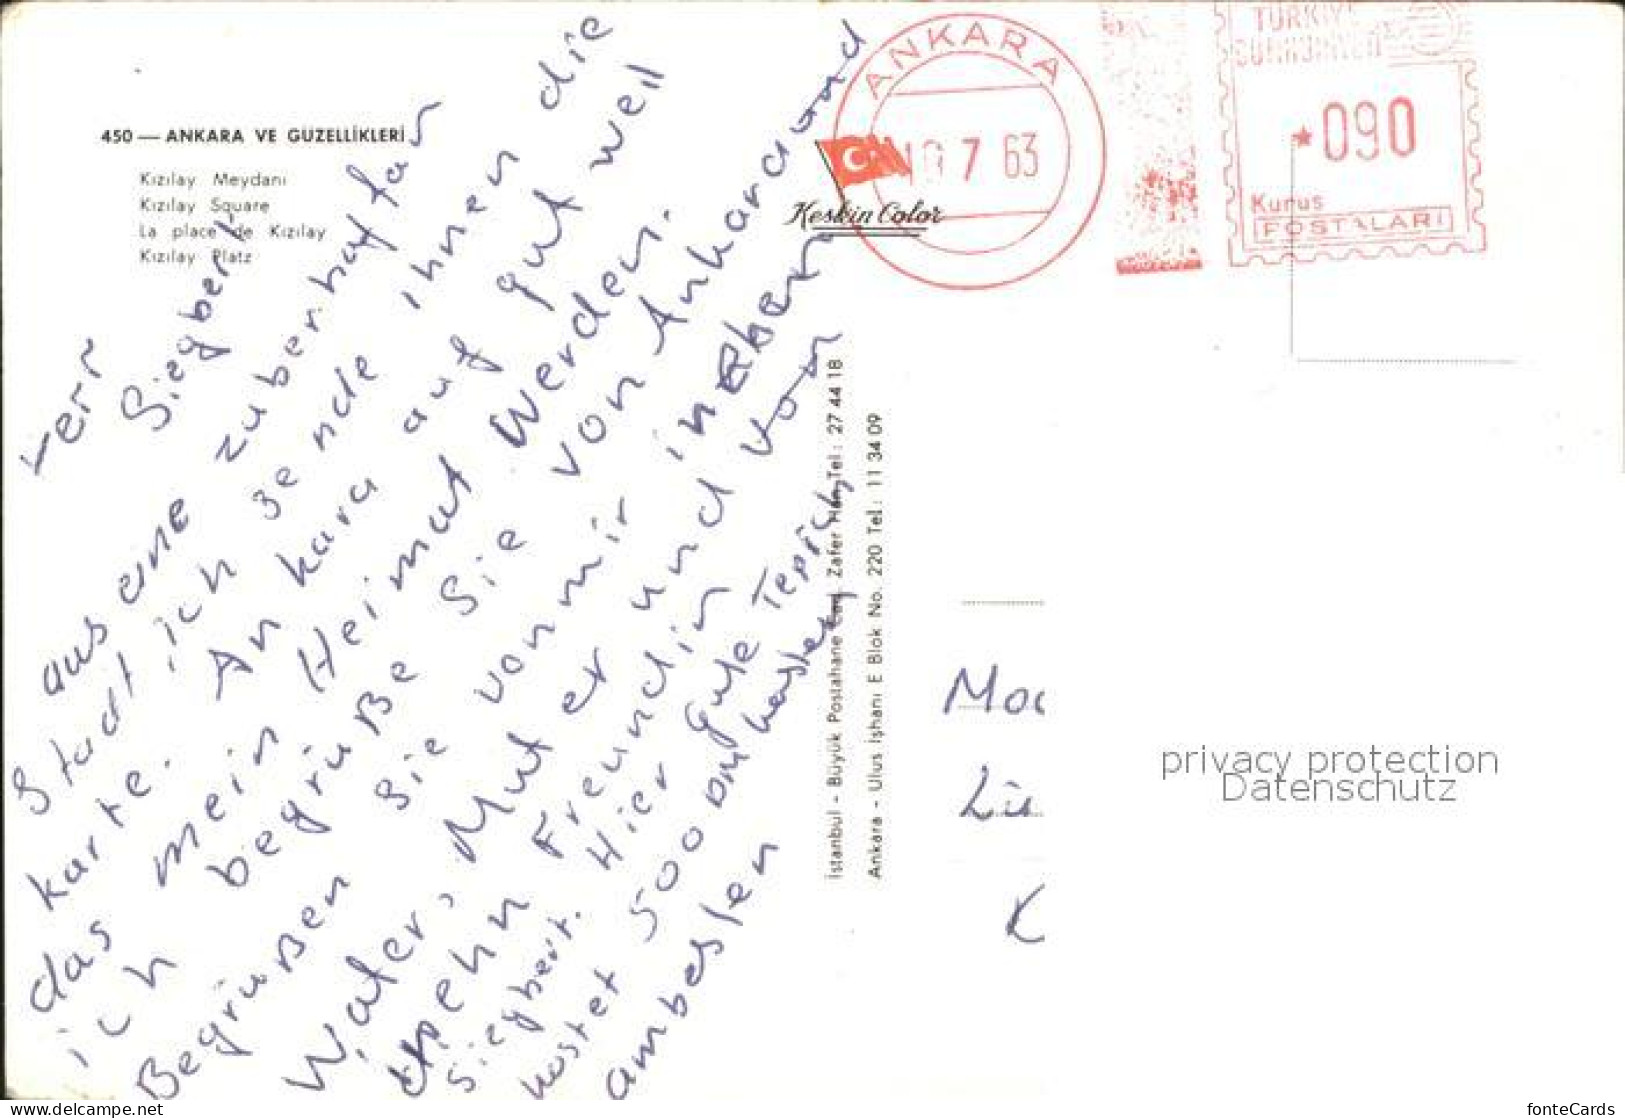 450 — ANKARA VE GUZELLİKLERİ
Kızılay Meydanı
Kızılay Square
La place de Kızılay
Kızılay Platz
Keskin Color
ANKARA
7 63
TÜRKİYE
090
Kuruş
POSTALARI
İstanbul - Büyük Postahane Cad. Zafer Han Tel : 27 44 18
Ankara - Ulus İşhanı E Blok No. 220 Tel : 11 34 09
Herr
Siegbert
aus eine zuberhaften
Stadt ich sende ihnen die
karte. An kara auf gut weil
das mein Heimat Werden.
ich begrüße Sie von Ankara und
Begrüßen Sie von mir
Water, Mutter und von
Freundin
Siegbert. Hier gute Tepich
kostet 500 DM
ambesten
privacy protection
Datenschutz
www.delcampe.net
fonteCards